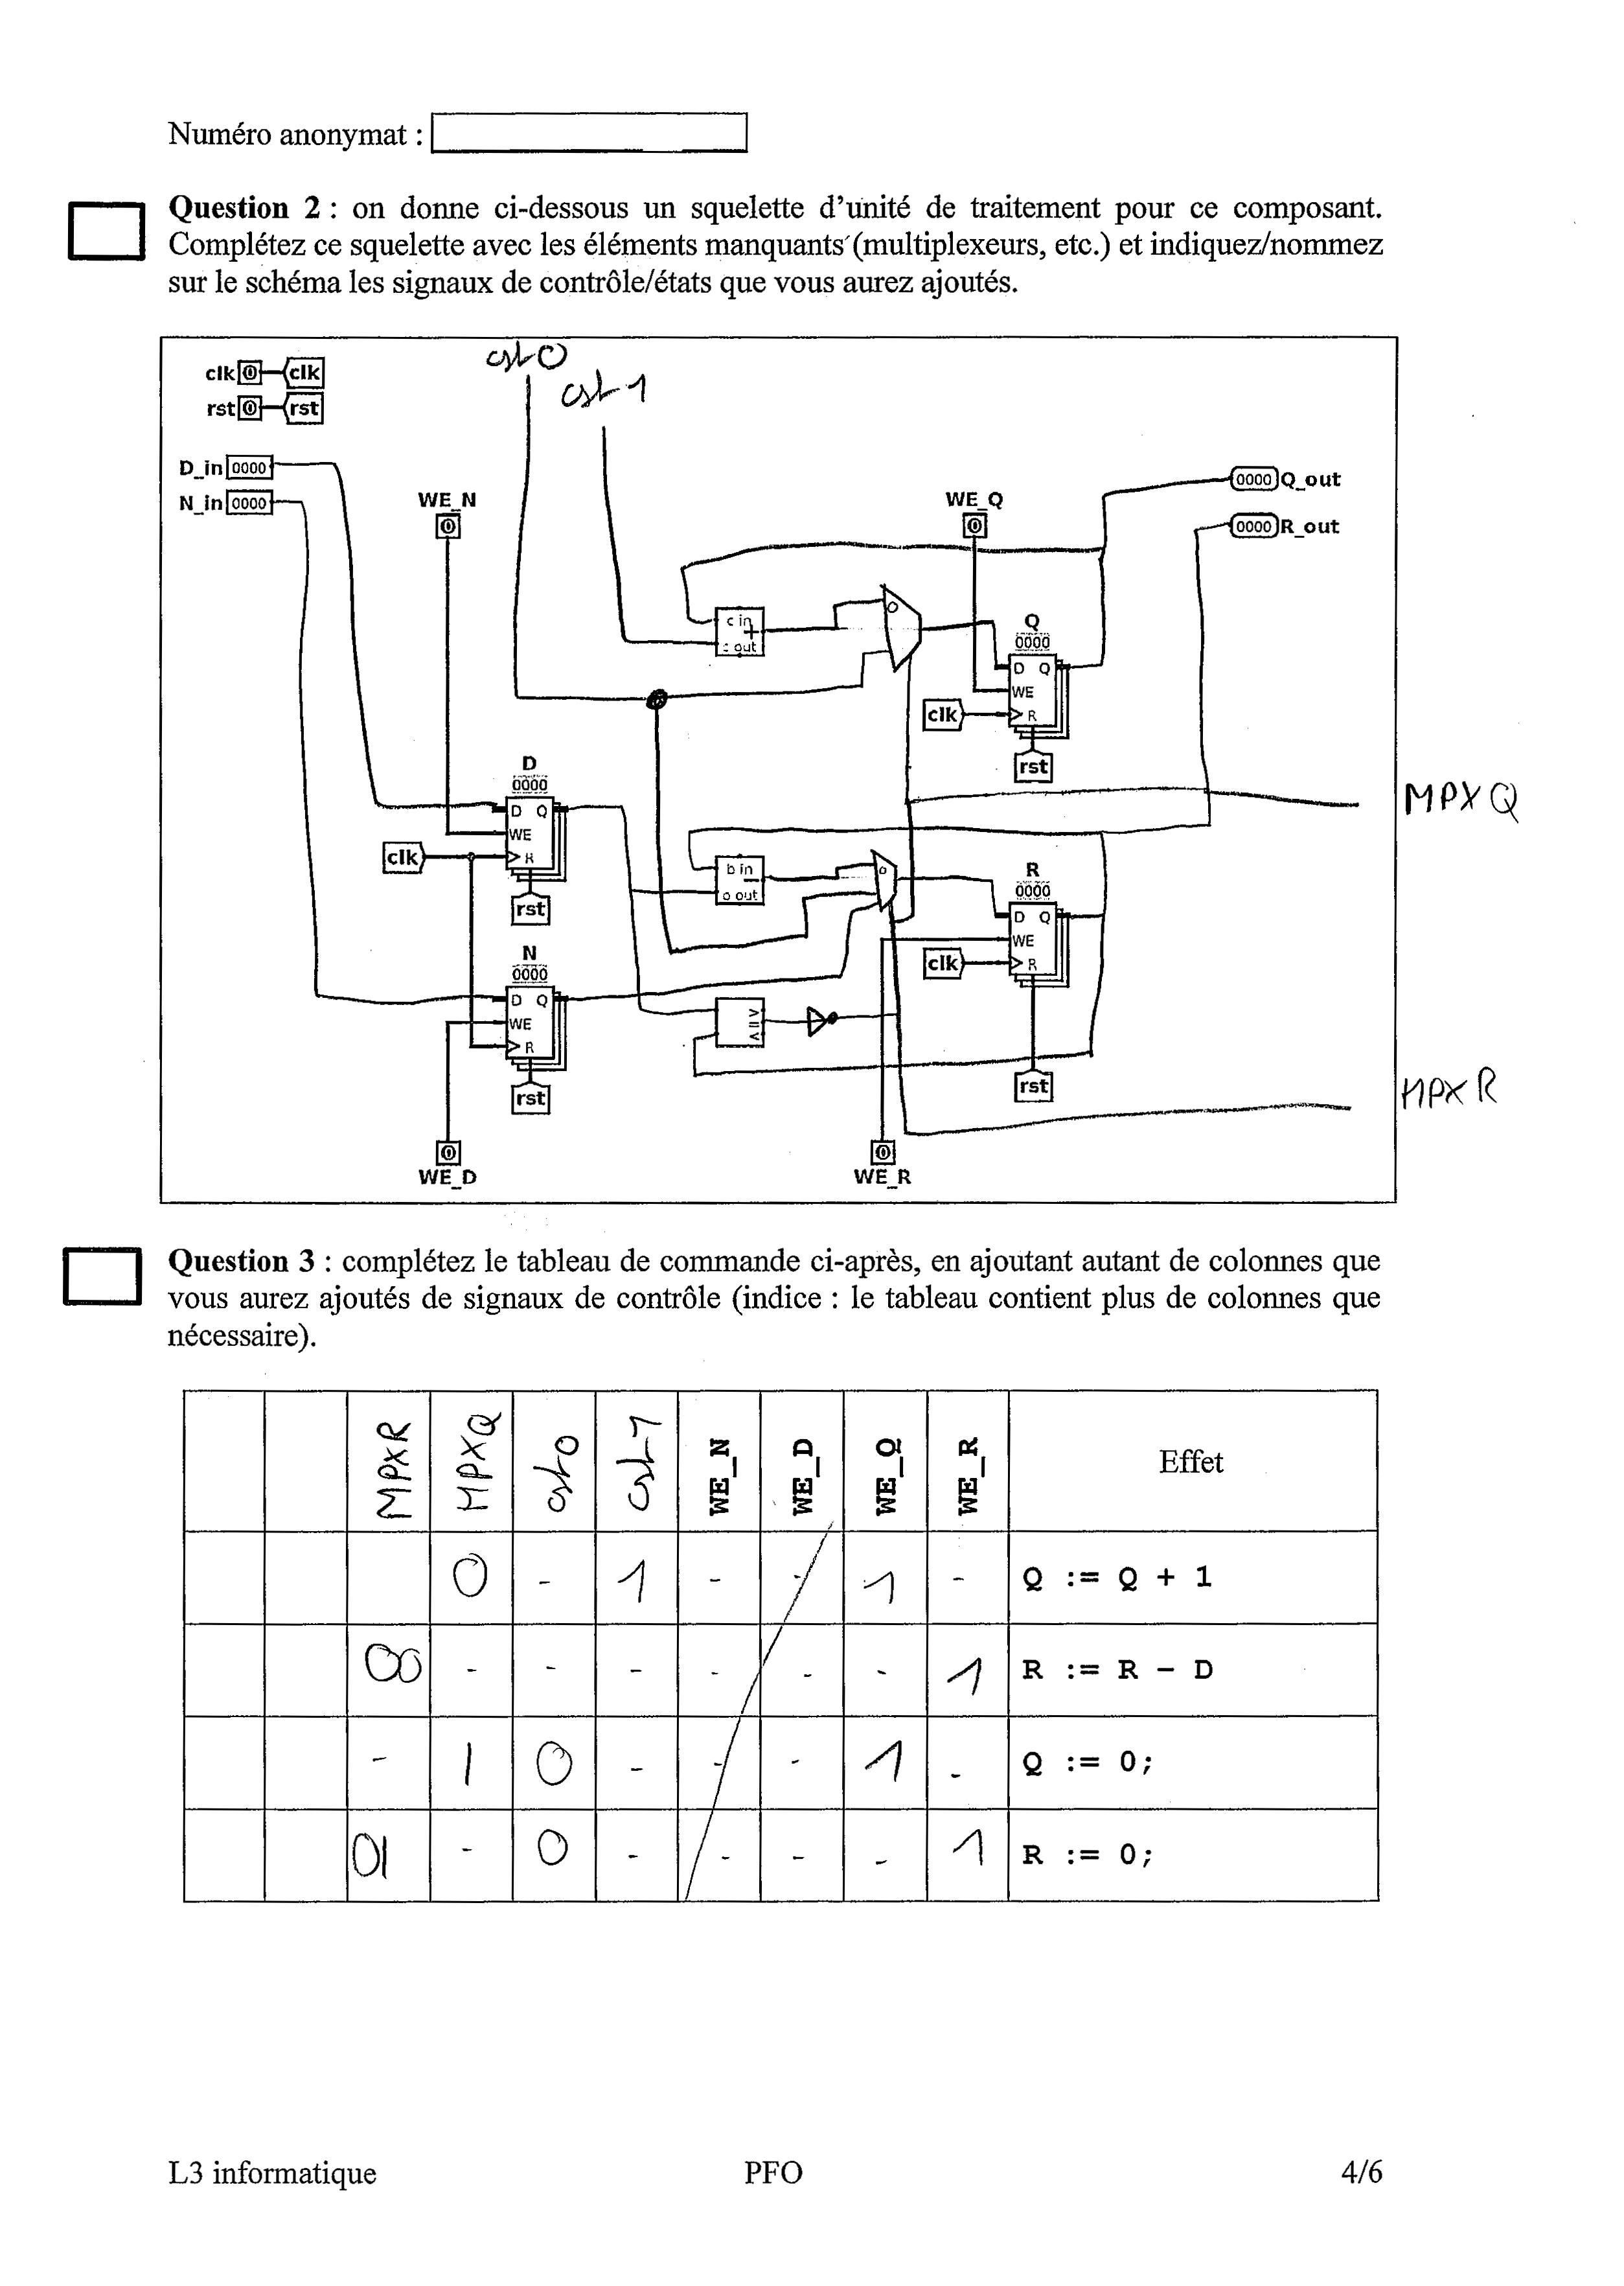 Numéro anonymat :
Question 2 : on donne ci-dessous un squelette d'unité de traitement pour ce composant.
Complétez ce squelette avec les éléments manquants (multiplexeurs, etc.) et indiquez/nommez
sur le schéma les signaux de contrôle/états que vous aurez ajoutés.
cst 0
clk 0 clk
cst 1
rst 0 rst
D_in 0000
0000 Q_out
N_in 0000
WE_N
WE_Q
0000 R_out
0
0
c in
+
c out
0
Q
0000
D Q
WE
R
clk
rst
D
0000
D Q
WE
R
clk
rst
MPX Q
b in
-
b out
0
R
0000
D Q
WE
R
clk
rst
N
0000
D Q
WE
R
rst
MPX R
0
WE_D
0
WE_R
Question 3 : complétez le tableau de commande ci-après, en ajoutant autant de colonnes que
vous aurez ajoutés de signaux de contrôle (indice : le tableau contient plus de colonnes que
nécessaire).
MPXR MPXQ cst0 cst1 WE_N WE_D WE_Q WE_R Effet
0 - 1 - - 1 - Q := Q + 1
00 - - - - - - 1 R := R - D
- 1 0 - - - 1 - Q := 0;
01 - 0 - - - - 1 R := 0;
L3 informatique PFO 4/6